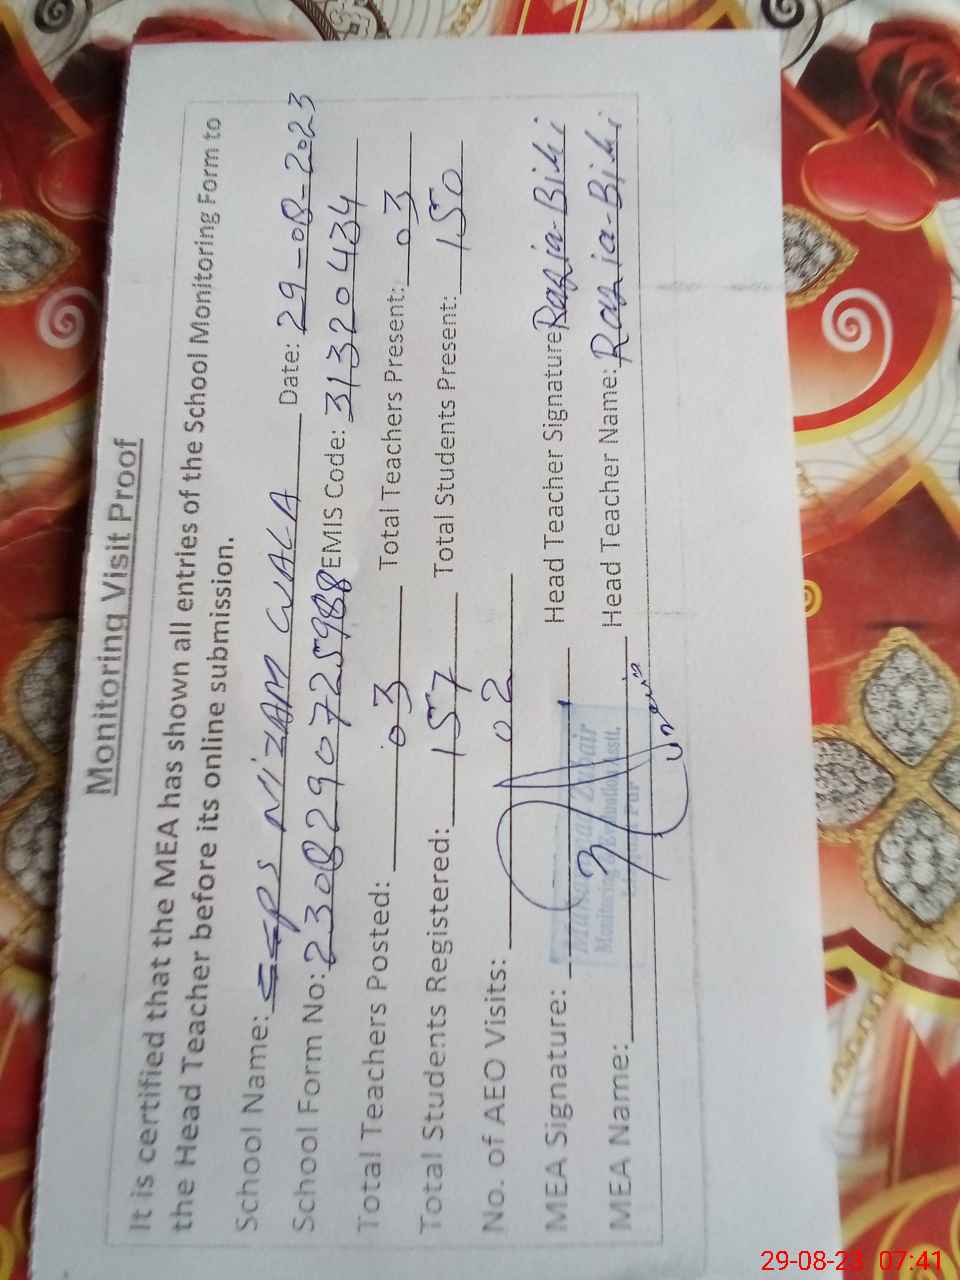 Monitoring Visit Proof
It is certified that the MEA has shown all entries of the School Monitoring Form to
the Head Teacher before its online submission.
School Name: GGPS NIZAM WALA Date: 29-08-2023
School Form No: 2308290725988 EMIS Code: 31320434
Total Teachers Posted: 03 Total Teachers Present: 03
Total Students Registered: 157 Total Students Present: 150
No. of AEO Visits: 02
MEA Signature: Head Teacher Signature Razia-Bibi
MEA Name: Head Teacher Name: Razia-Bibi
Zubair
Monitoring & Evaluation Asstt.
Pur
29-08-23 07:41